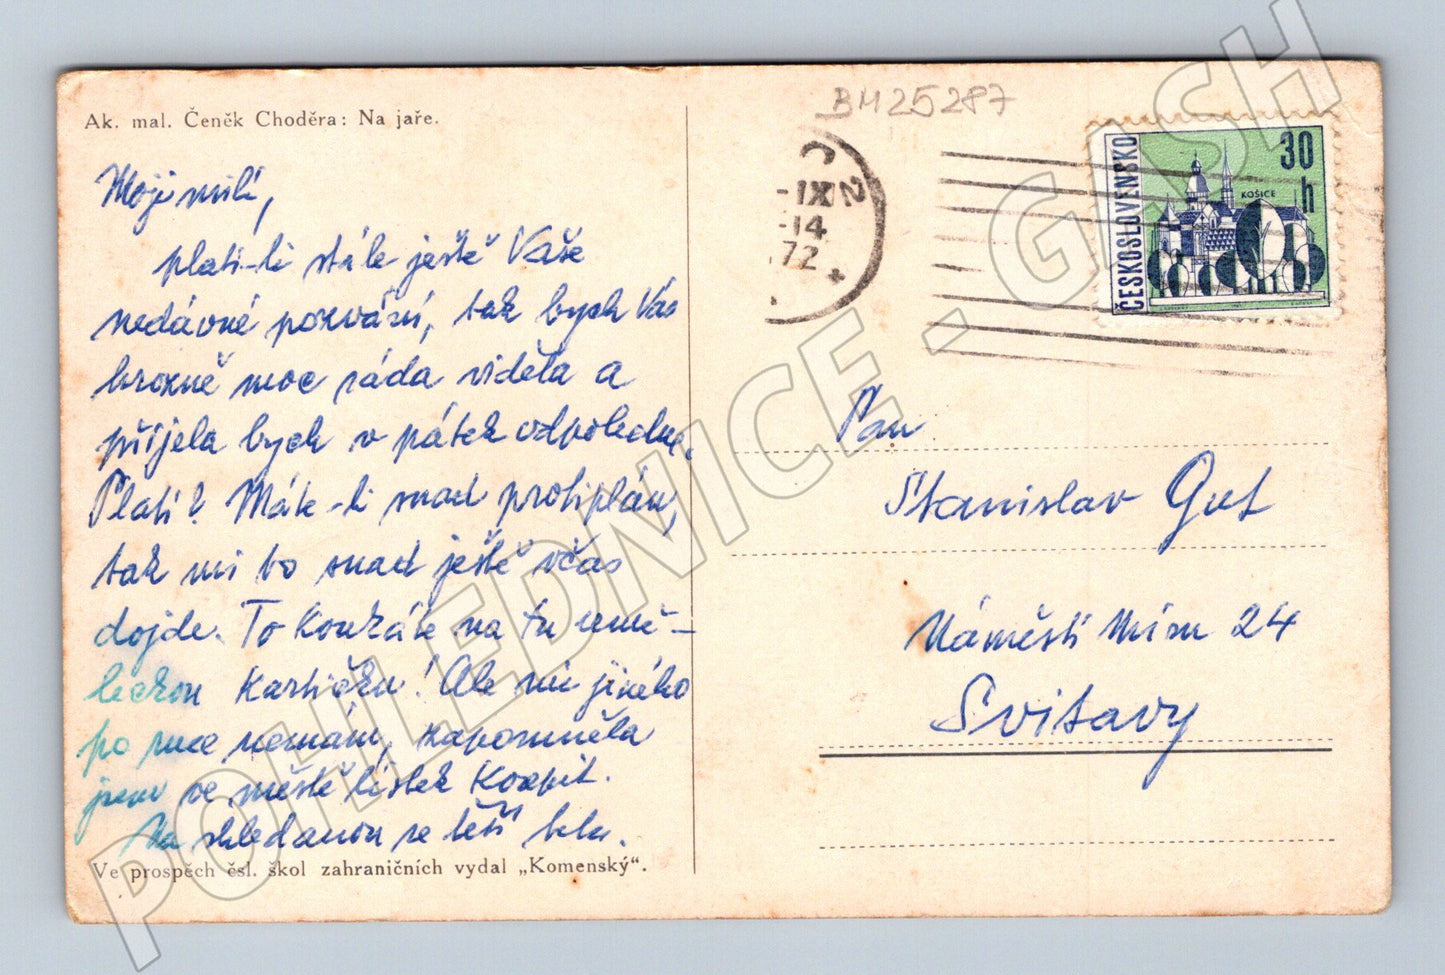 BM25287
Ak. mal. Čeněk Choděra: Na jaře.
Moji milí,
platí-li stále ještě Vaše
nedávné pozvání, tak bych Vás
hrozně moc ráda viděla a
přijela bych v pátek odpoledne.
Platí? Máte-li snad protiplán,
tak mi to snad ještě včas
dojde. To koukáte na tu umě-
leckou kartičku! Ale nic jiného
po ruce nemám, zapomněla
jsem ve městě lístek koupit.
Na shledanou se těší
Ve prospěch čsl. škol zahraničních vydal „Komenský“.
-IX
-14
72
2
ČESKOSLOVENSKO
30
h
KOŠICE
Pan
Stanislav Gut
Náměstí Míru 24
Svitavy
POHLEDNICE - GASH